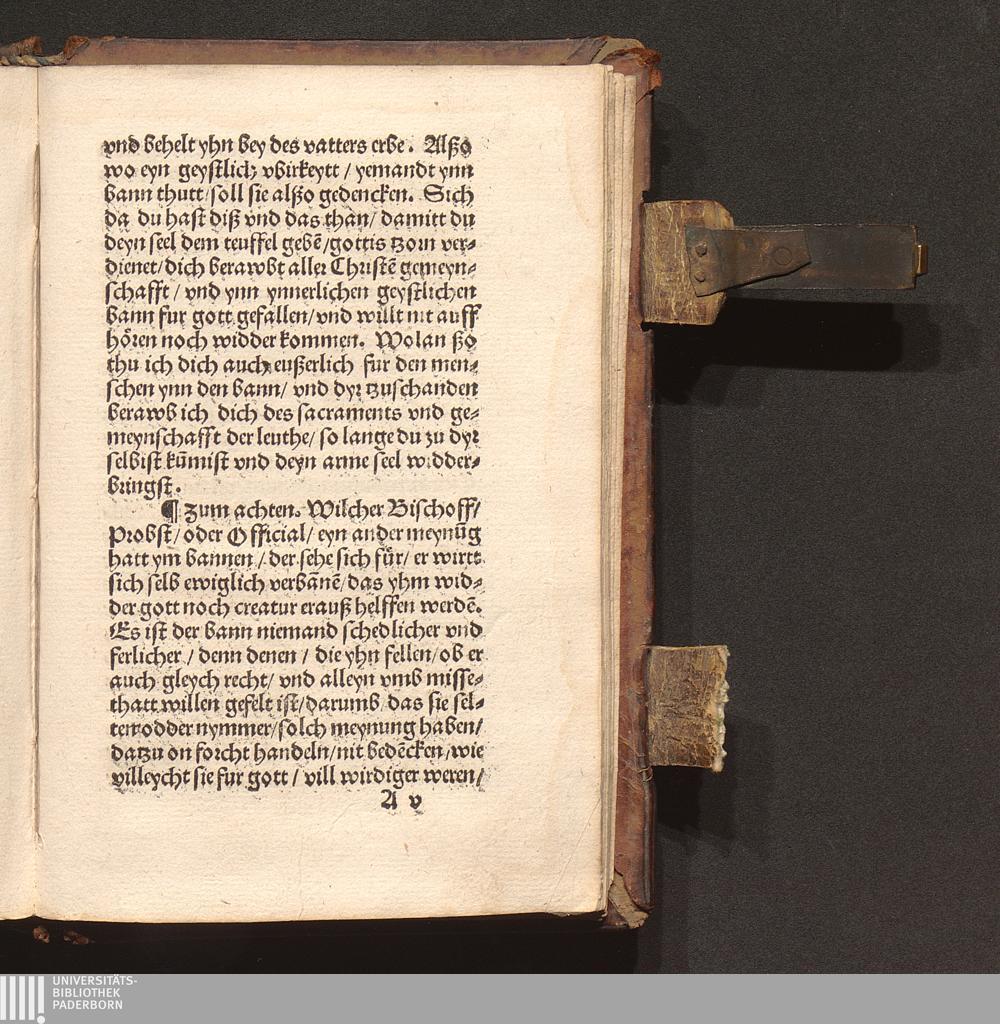 vnd behelt yhn bey des vatters erbe. Alßo
wo eyn geystlich vbirkeytt / yemandt ynn
bann thutt / soll sie alßo gedencken. Sich
da du hast diß vnd das than / damitt du
deyn seel dem teuffel gebē / gottis tzorn ver⸗
dienet / dich berawbt aller Christē gemeyn⸗
schafft / vnd ynn ynnerlichen geystlichen
bann fur gott gefallen / vnd willt nit auff
hören noch widder kommen. Wolan ßo
thu ich dich auch eußerlich fur den men⸗
schen ynn den bann / vnd dyr tzuschanden
berawb ich dich des sacraments vnd ge⸗
meynschafft der leuthe / so lange du zu dyr
selbist kūmist vnd deyn arme seel widder⸗
bringst.
¶ Zum achten. Wilcher Bischoff /
Probst / oder Official / eyn ander meynūg
hatt ym bannen / der sehe sich für / er wirtt
sich selb ewiglich verbānē / das yhm wid⸗
der gott noch creatur erauß helffen werdē.
Es ist der bann niemand schedlicher vnd
ferlicher / denn denen / die yhn fellen / ob er
auch gleych recht / vnd alleyn vmb misse⸗
thatt willen gefelt ist / darumb das sie sel⸗
ten odder nymmer / solch meynung haben /
datzu on forcht handeln / nit bedēcken / wie
villeycht sie fur gott / vill wirdiger weren /
A v
UNIVERSITÄTS-
BIBLIOTHEK
PADERBORN